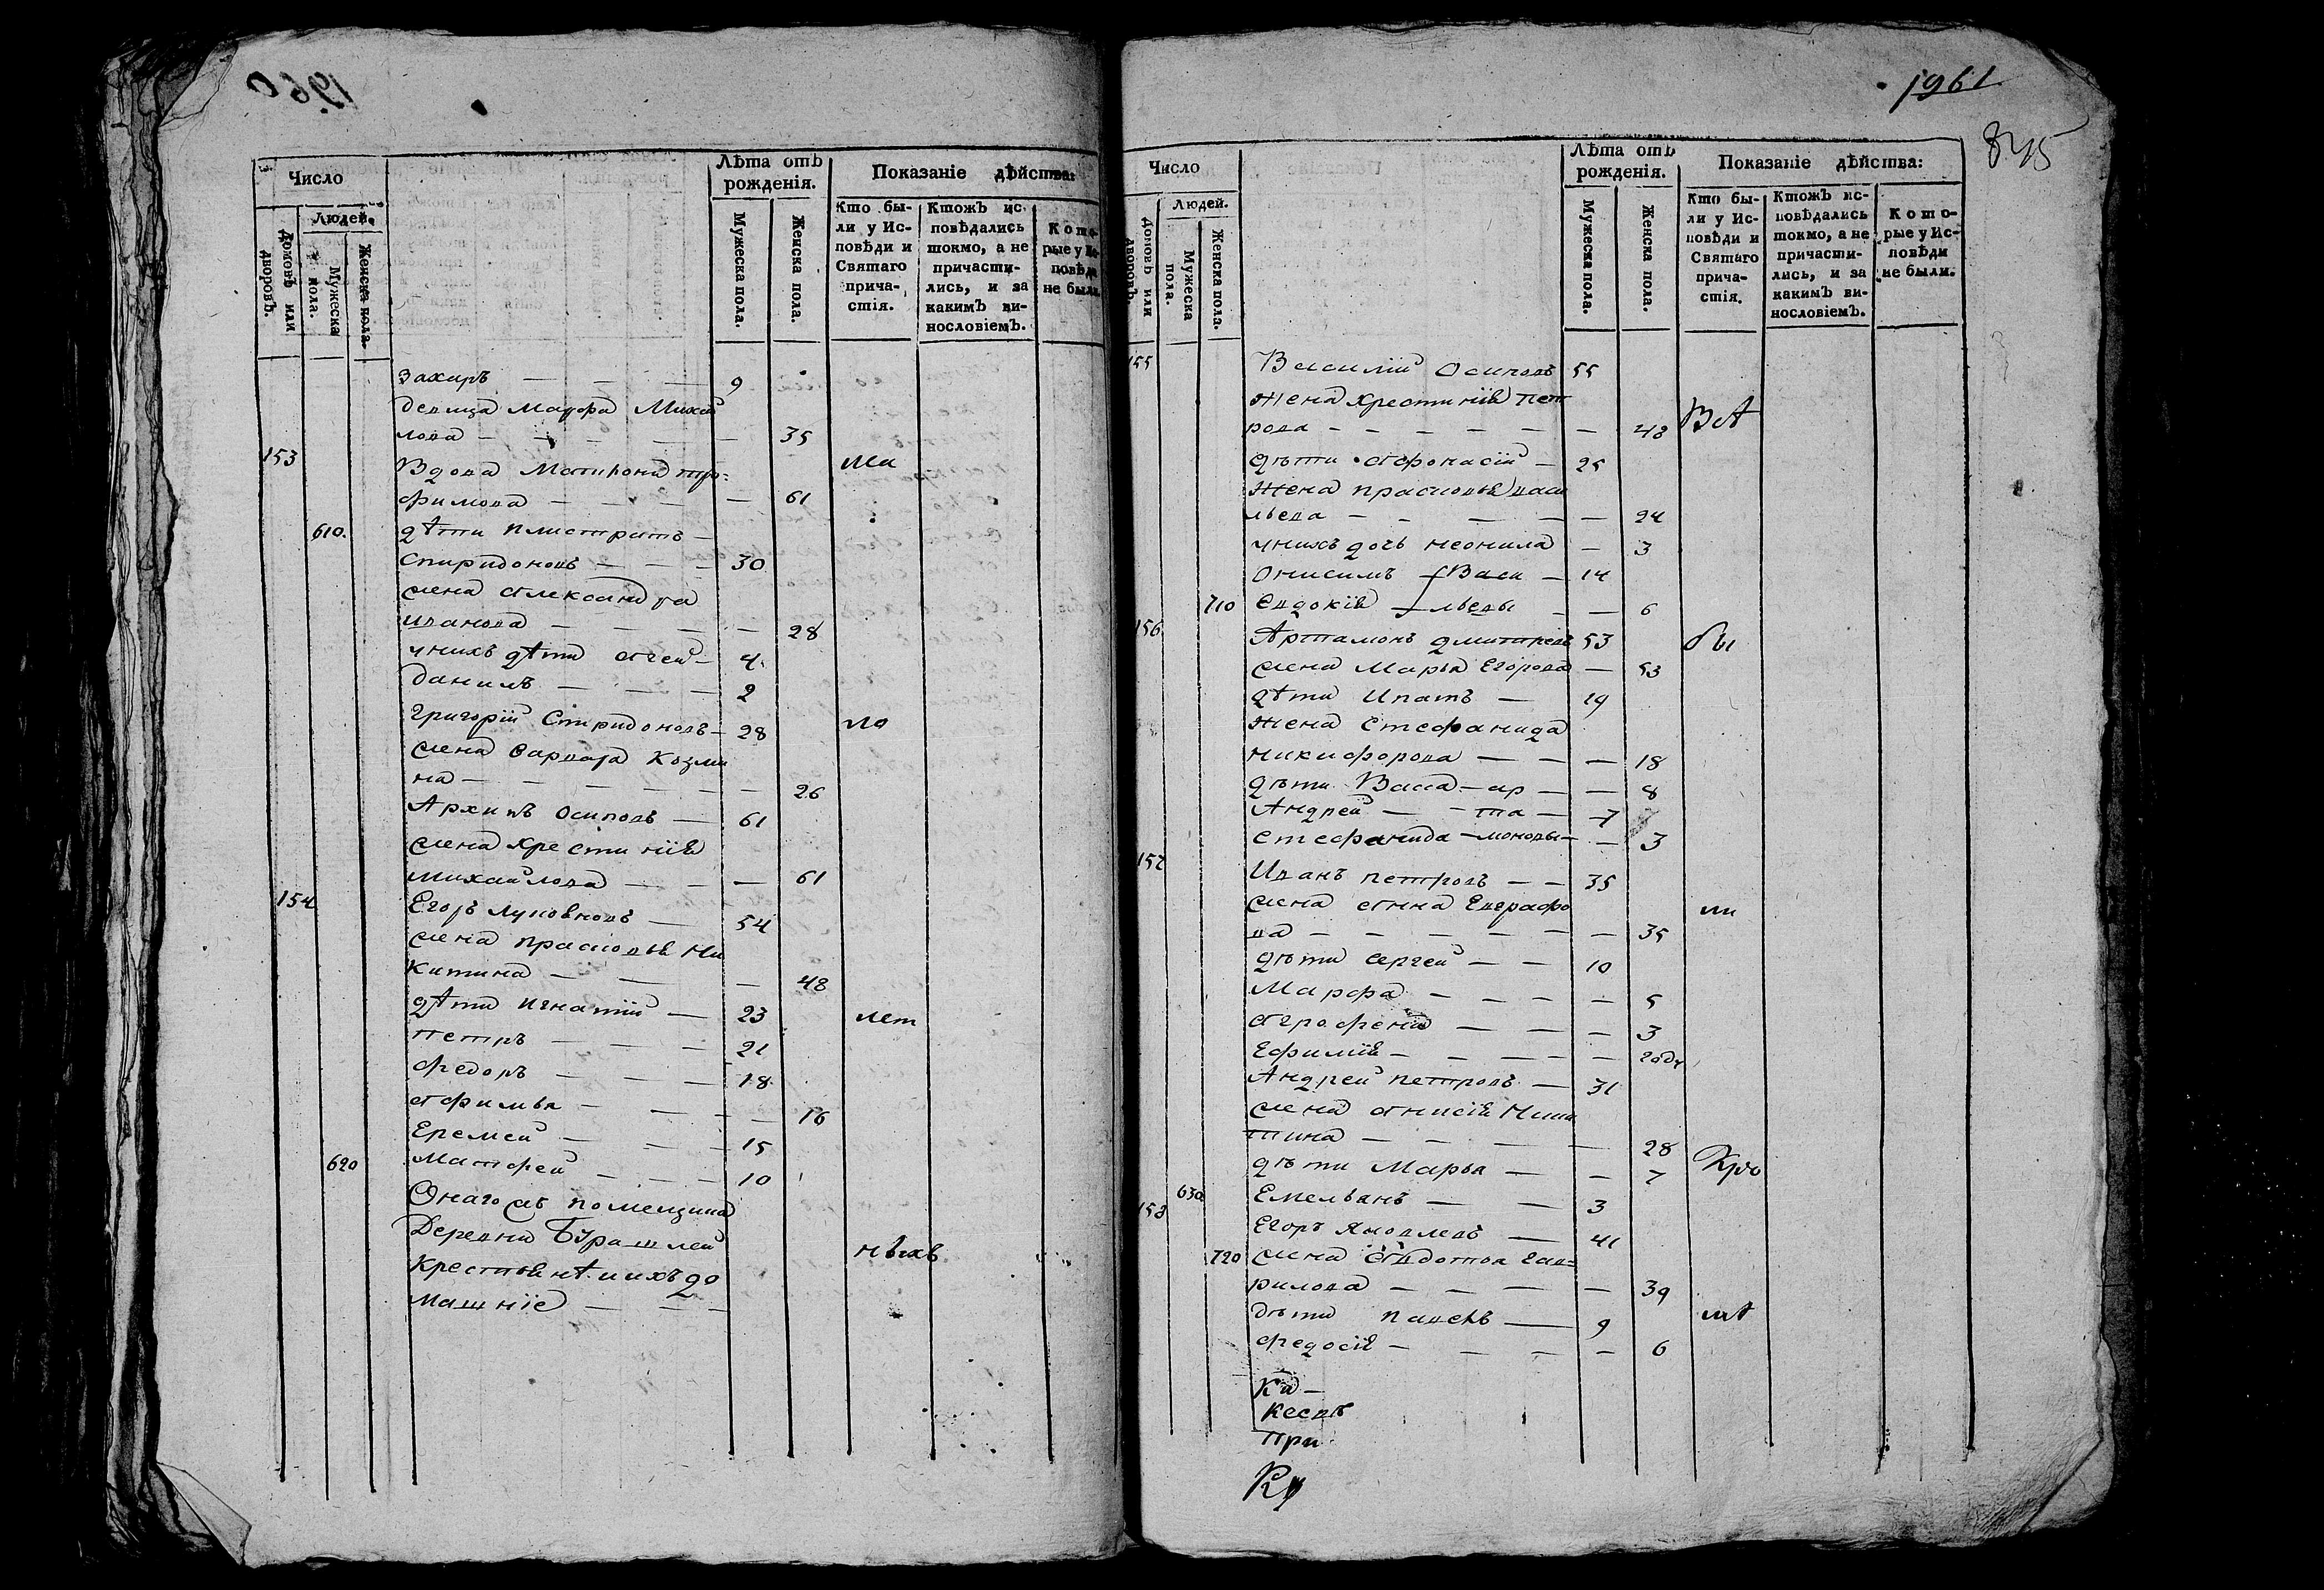 1960
Число
Лѣта отъ рожденія.
Показаніе дѣйства:
Домовъ или дворовъ.
Людей.
Мужеска пола.
Женска пола.
Мужеска пола.
Женска пола.
Кто были у Исповѣди и Святаго причастія.
Ктожъ исповѣдались токмо, а не причастились, и за какимъ винословіемъ.
Которые у Исповѣди не были.
Захаръ — — — 9
девица Марфа Михаи
лова — — — — 35
153 Вдова Матрона тро- ли
фимова — — — — 61
610. дѣти Плистратъ —
Спиридоновъ — — — 30
жена Александра
иванова — — — — 28
у нихъ дѣти Агеи — 4
данилъ — — — 2
Григоріи Спиридоновъ — 28 ло
жена Варвара Козми
на — — — — — 26
Архипъ Осиповъ — 61
жена Хрестинія
михаилова — — — 61
154 Егоръ — 54
жена Прасковья Ни
китина — — — 48
дѣти Игнатіи — 23 лет
Петръ — — — 21
Федоръ — — — 18
Афимья — — — 16
Еремеи — — — 15
620 Матфеи — — — 10
Онагожъ помещика
Деревни Бурашлеи
Крестьянѣ и ихъ до нихъ
машніе — — —
1961
845
Число
Лѣта отъ рожденія.
Показаніе дѣйства:
Домовъ или дворовъ.
Людей.
Мужеска пола.
Женска пола.
Мужеска пола.
Женска пола.
Кто были у Исповѣди и Святаго причастія.
Ктожъ исповѣдались токмо, а не причастились, и за какимъ винословіемъ.
Которые у Исповѣди не были.
155 Василіи Осиповъ 55
жена Хрестинія Пет
рова — — — — — — 48 Всѣ
дѣти Афонасіи — 25
жена Прасковья Васи
льева — — — — — 24
у нихъ дочь Неонила — 3
Онисимъ Васи — 14
710 Евдокія льевы — — 6
156 Артамонъ Дмитревъ 53 бы
жена Марья Егорова — 53
дѣти Ипатъ — 19
жена Стефанида
никифорова — — — 18
дѣти Васса — ар — — 8
Андреи — та — 7
Стефанида — моновы — — 3
157 Иванъ Петровъ — — 35
жена Анна Евграфо ли
ва — — — — — — 35
дѣти Сергеи — — 10
Марфа — — — — 5
Аграфена — — — 3
Ефимія — — — — — году
Андреи Петровъ — 31
жена Анисія Ники
тина — — — — 28
дѣти Марья — — 7 Кро
630. Емельянъ — — 3
158 Егоръ Яковлевъ — 41
720 жена Авдотья Гав-
рилова — — — — 39
дѣти Павелъ — 9 мѣ
Федосія — — — — 6
Ка —
При